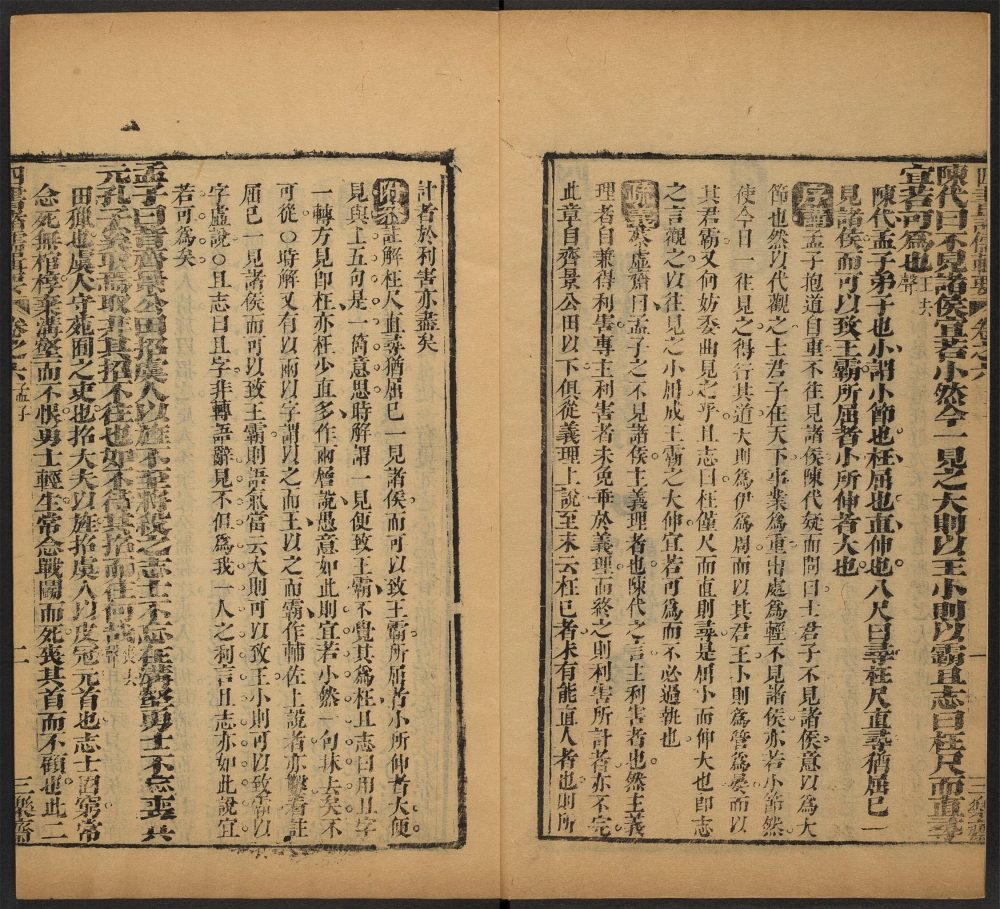 陳代曰不見諸侯宜若小然今一見之大則以王小則以霸且志曰枉尺而直尋
宜若可爲也王去聲
陳代孟子弟子也小謂小節也枉屈也直伸也八尺曰尋枉尺直尋猶屈己一
見諸侯而可以致王霸所屈者小所伸者大也
孟子抱道自重不往見諸侯陳代疑而問曰士君子不見諸侯意以爲大
節也然以代觀之士君子在天下事業爲重出處爲輕不見諸侯亦若小節然
使今日一往見之得行其道大則爲伊爲周而以其君王小則爲管爲晏而以
其君霸又何妨委曲見之乎且志曰枉僅尺而直則尋是屈小而伸大也卽志
之言觀之以往見之小屈成王霸之大伸宜若可爲而不必過執也
疏義蔡虛齋曰孟子之不見諸侯主義理者也陳代之言主利害者也然主義
理者自兼得利害專主利害者未免乖於義理而終之則利害所計者亦不完
此章自齊景公田以下俱從義理上說至末云枉己者未有能直人者也則所
計者於利害亦盡矣
註解枉尺直尋猶屈己一見諸侯而可以致王霸所屈者小所伸者大便
見與上五句是一倚意思時解謂一見便致王霸不覺其爲枉且志曰用且字
一轉方見卽枉亦枉少直多作兩層說愚意如此則宜若小然一句抹去矣不
可從○時解又有以兩以字謂以之而王以之而霸作輔佐上說者亦繫看註
屈己一見諸侯而可以致王霸則語氣當云大則可以致王小則可以致霸以
字虛說○且志曰且字非轉語辭見不但爲我一人之利言且志亦如此說宜
若可爲矣
孟子曰昔齊景公田招虞人以旌不至將殺之志士不忘在溝壑勇士不忘喪其
元孔子奚取焉取非其招不往也如不待其招而往何哉喪去聲
田獵也虞人守苑囿之吏也招大夫以旌招虞人以皮冠元首也志士固窮常
念死無棺槨棄溝壑而不恨勇士輕生常念戰鬭而死喪其首而不顧也此二
卷之六 孟子
二
三樂齋